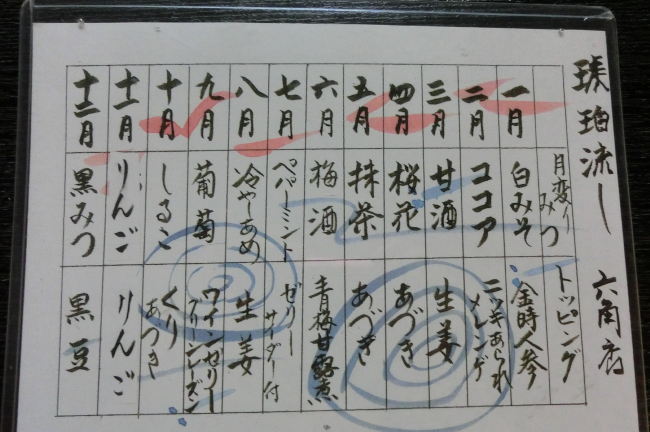 琥珀流し 六角店
月変りみつ トッピング
一月 白みそ 金時人参
二月 ココア ニッキあられ メレンゲ
三月 甘酒 生姜
四月 桜花 あづき
五月 抹茶 あづき
六月 梅酒 青梅甘露煮
七月 ペパーミント ゼリー サイダー付
八月 冷やしあめ 生姜
九月 葡萄 ワインゼリー グリーンレーズン
十月 しるこ くり あづき
十一月 りんご りんご
十二月 黒みつ 黒豆